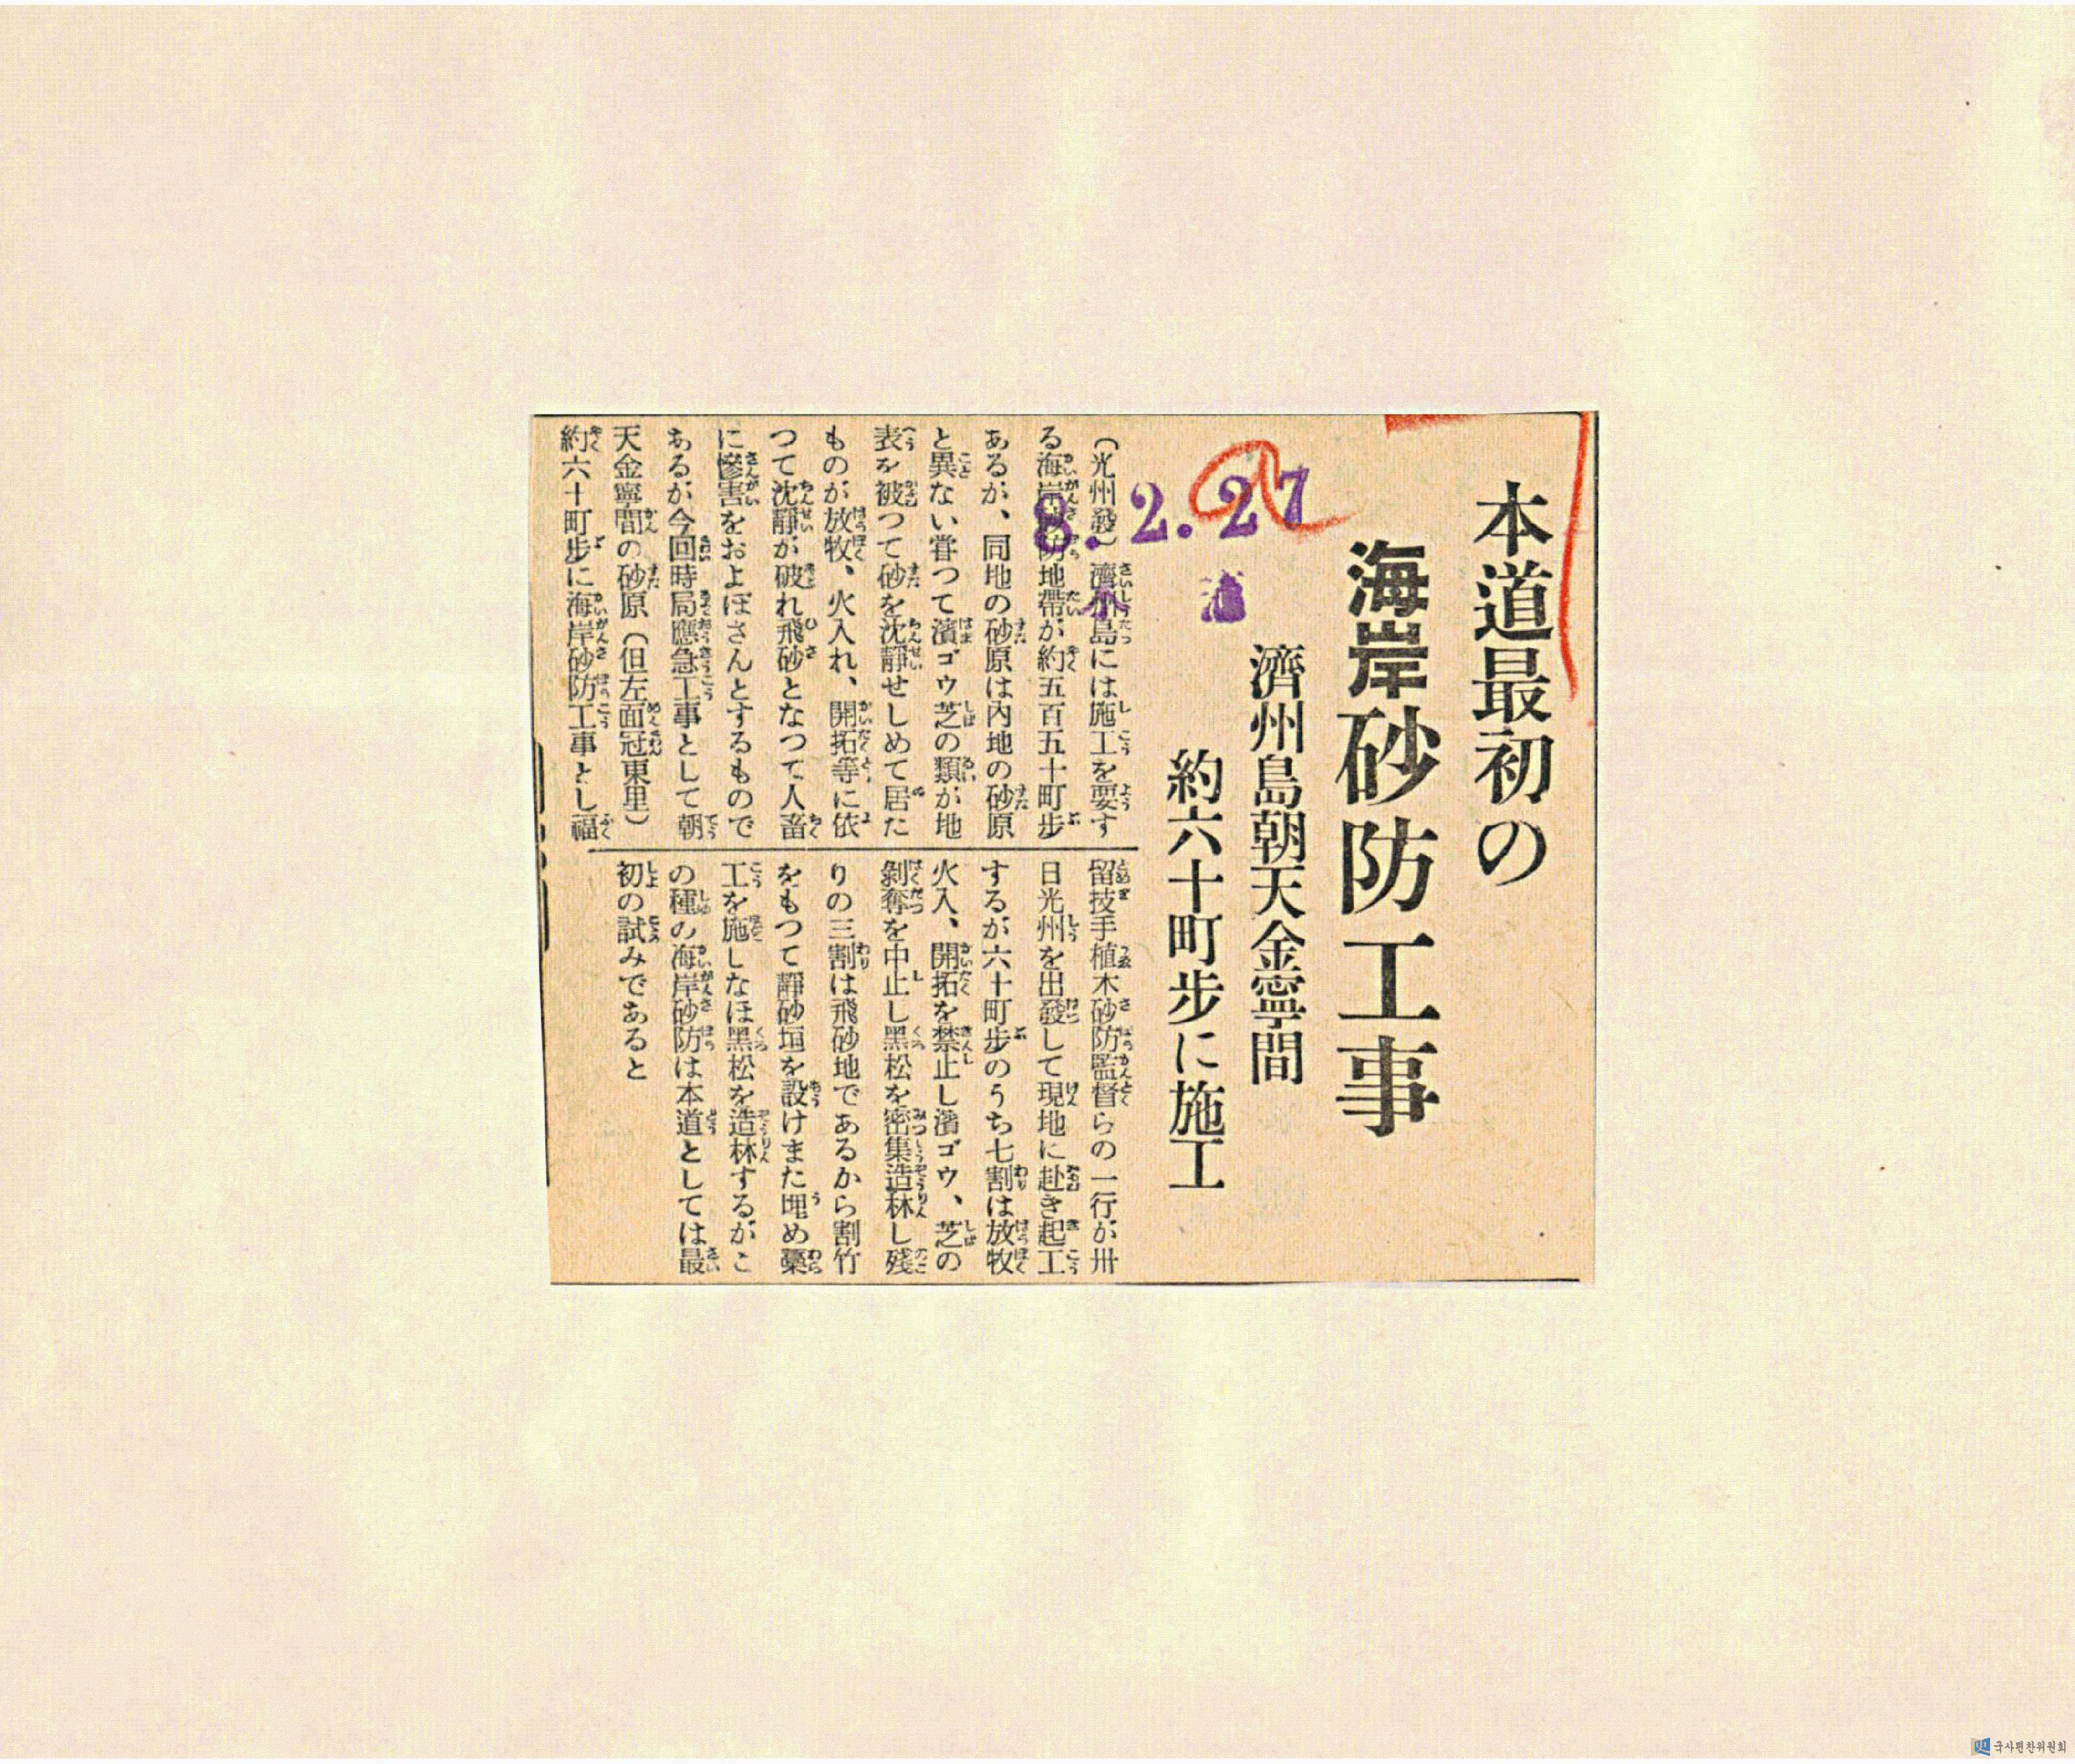 本道最初の
海岸砂防工事
濟州島朝天金寧間
約六十町步に施工
8.2.27
（光州發）濟州島には施工を要す
る海岸砂防地帶が約五百五十町步
あるが、同地の砂原は內地の砂原
と異ない甞つて濱ゴウ芝の類が地
表を被つて砂を沈靜せしめて居た
ものが放牧、火入れ、開拓等に依
つて沈靜が破れ飛砂となつて人畜
に慘害をおよぼさんとするもので
あるが今回時局應急工事として朝
天金寧間の砂原（但左面冠東里）
約六十町步に海岸砂防工事とし福
留技手植木砂防監督らの一行が卅
日光州を出發して現地に赴き起工
するが六十町步のうち七割は放牧
火入、開拓を禁止し濱ゴウ、芝の
剝奪を中止し黑松を密集造林し殘
りの三割は飛砂地であるから割竹
をもつて靜砂垣を設けまた埋め藁
工を施しなほ黑松を造林するがこ
の種の海岸砂防は本道としては最
初の試みであると
국사편찬위원회